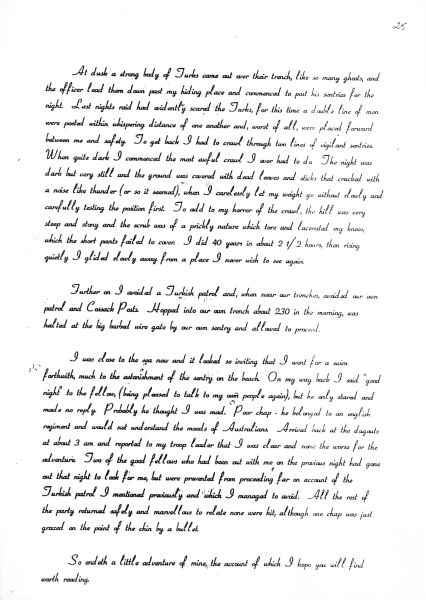 25
At dusk a strong body of Turks came out over their trench, like so many ghosts, and
the officer lead them down past my hiding place and commenced to post his sentries for the
night. Last nights raid had evidently scared the Turks, for this time a double line of men
were posted within whispering distance of one another and, worst of all, were placed forward
between me and safety. To get back I had to crawl through two lines of vigilant sentries.
When quite dark I commenced the most awful crawl I ever had to do. The night was
dark but very still and the ground was covered with dead leaves and sticks that cracked with
a noise like thunder (or so it seemed), when I carelessly let my weight go without slowly and
carefully testing the position first. To add to my horror of the crawl, the hill was very
steep and stony and the scrub was of a prickly nature which tore and lacerated my knees,
which the short pants failed to cover. I did 40 years in about 2 1/2 hours, then rising
quietly I glided slowly away from a place I never wish to see again.
Further on I avoided a Turkish patrol and, when near our trenches, avoided our own
patrol and Cossack Posts. Hopped into our own trench about 230 in the morning, was
halted at the big barbed wire gate by our own sentry and allowed to proceed.
I was close to the sea now and it looked so inviting that I went for a swim
forthwith, much to the astonishment of the sentry on the beach. On my way back I said "good
night" to the fellow, (being pleased to talk to my own people again), but he only stared and
made no reply. Probably he thought I was mad. Poor chap - he belonged to an english
regiment and would not understand the moods of Australians. Arrived back at the dugouts
at about 3 am and reported to my troop leader that I was clear and none the worse for the
adventure. Two of the good fellows who had been out with me on the previous night had gone
out that night to look for me, but were prevented from proceeding far on account of the
Turkish patrol I mentioned previously and which I managed to avoid. All the rest of
the party returned safely and marvellous to relate none were hit, although one chap was just
grazed on the point of the chin by a bullet.
So endeth a little adventure of mine, the account of which I hope you will find
worth reading.